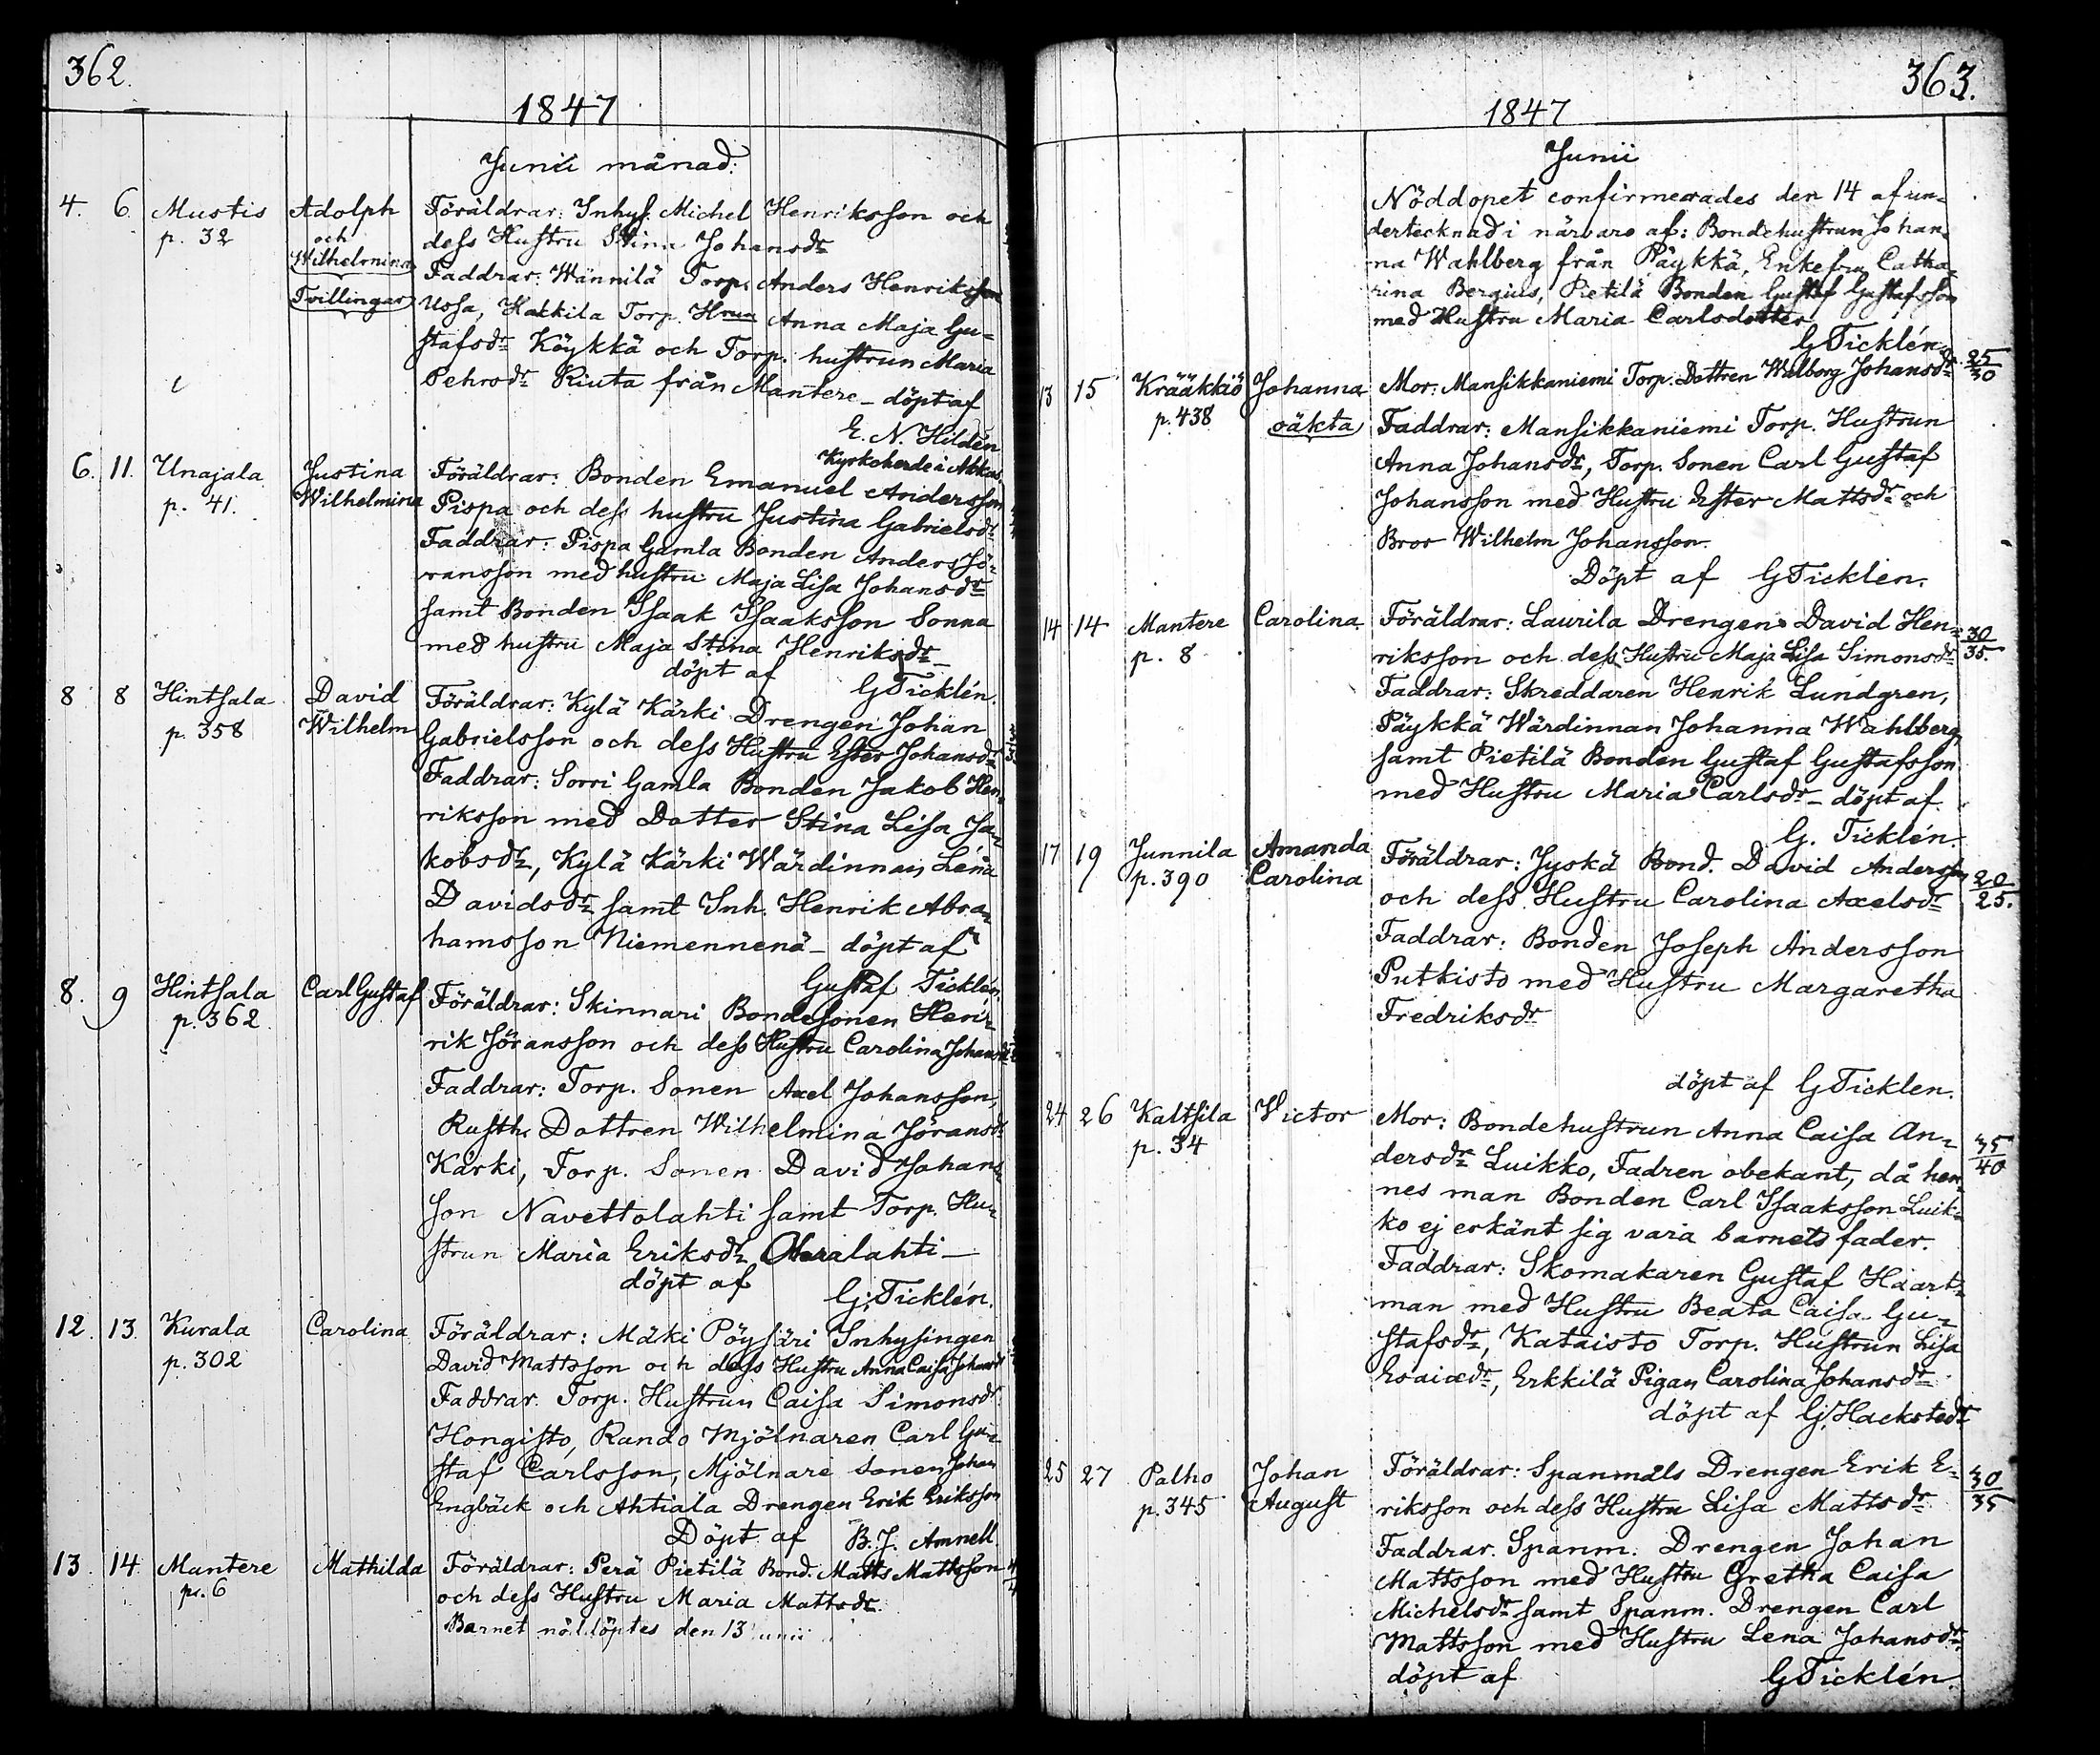 362.
1847
Junii månad:
4. 6. Mustis Adolph Föräldrar: Inhys. Michel Henriksson och
p. 32 och dess Hustru Stina Johansdr
Wilhelmina Faddrar: Wännilä Torp. Anders Henriksson
Tvillingar Ussa, Hakkila Torp. Hrun Anna Maja Gu-
stafsdr Köykkä och Torp. hustrun Maria
Pehrsdr Riuta från Mantere – döpt af
E. N. Hildén
Kyrkoherde i Akkas
6. 11. Unajala Justina Föräldrar: Bonden Emanuel Andersson
p. 41. Wilhelmina Pispa och dess hustru Justina Gabrielsdr
Faddrar: Pispa Gamla Bonden Anders Jö-
ransson med hustru Maja Lisa Johansdr
samt Bonden Isaak Isaaksson Sonna
med hustru Maja Stina Henriksdr –
döpt af GTicklén.
8 8 Hintsala David Föräldrar: Kylä Kärki Drengen Johan
p. 358 Wilhelm Gabrielsson och dess Hustru Ester Johansdr
Faddrar: Sorri Gamla Bonden Jakob Hen-
riksson med Dotter Stina Lisa Ja-
kobsdr, Kylä Kärki Wärdinnan Lena
Davidsdr samt Inh. Henrik Abra-
hamsson Niemennenä – döpt af
Gustaf Ticklén
8. 9 Hintsala Carl Gustaf Föräldrar: Skinnari Bondesonen Hen-
p. 362. rik Jöransson och dess Hustru Carolina Johansdr
Faddrar: Torp. Sonen Axel Johansson,
Rusth. Dottren Wilhelmina Jöransdr
Kärki, Torp. Sonen David Johans-
son Navettolahti samt Torp. Hu-
strun Maria Eriksdr –
döpt af G. Ticklén.
12. 13. Kurala Carolina Föräldrar: Mäki Pöysäri Inhysingen
p. 302 David Mattsson och dess Hustru Anna Caisa Johansdr
Faddrar. Torp. Hustrun Caisa Simonsdr
Hongisto, Rando Mjölnaren Carl Gu-
staf Carlsson, Mjölnare sonen Johan
Engbäck och Ahtiala Drengen Erik Eriksson
Döpt af B. J. Amnell.
13. 14. Mantere Mathilda Föräldrar: Perä Pietilä Bond. Matts Mattsson
p. 6 och dess Hustru Maria Mattsdr.
Barnet nöddöptes den 13 Junii
363.
1847
Junii
Nöddopet confirmerades den 14 af un-
dertecknad i närvaro af: Bondehustrun Johan-
na Wahlberg från Päykkä, Enkefru Catha-
rina Bergius, Pietilä Bonden Gustaf Gustafsson
med Hustru Maria Carlsdotter
GTicklén.
13 15 Krääkkiö Johanna Mor: Mansikkaniemi Torp. Dottren Walborg Johansdr 25/30
p. 438 oäkta Faddrar: Mansikkaniemi Torp. Hustrun
Anna Johansdr, Torp. Sonen Carl Gustaf
Johansson med Hustru Ester Mattsdr och
Bror Wilhelm Johansson.
Döpt af GTicklen.
14 14 Mantere Carolina. Föräldrar: Laurila Drengen David Hen- 30/35.
p. 8 riksson och dess Hustru Maja Lisa Simonsdr
Faddrar: Skreddaren Henrik Lundgren,
Päykkä Wärdinnan Johanna Wahlberg,
samt Pietilä Bonden Gustaf Gustafsson
med Hustru Maria Carlsdr – döpt af
G. Ticklén.
17 19 Junnila Amanda Föräldrar: Jyskä Bond. David Andersson 20/25.
p. 390 Carolina och dess Hustru Carolina Axelsdr
Faddrar: Bonden Joseph Andersson
Putkisto med Hustru Margaretha
Fredriksdr
döpt af GTicklen.
24 26 Kaltsila Victor Mor: Bondehustrun Anna Caisa An- 35/40
p. 34 dersdr Luikko, Fadren obekant, då hen-
nes man Bonden Carl Isaaksson Luik-
ko ej erkänt sig vara barnets fader.
Faddrar: Skomakaren Gustaf Haart-
man med Hustru Beata Caisa Gu-
stafsdr, Kataisto Torp. Hustrun Lisa
Esaiædr, Erkkilä Pigan Carolina Johansdr
döpt af Gj Hackstedt
25 27 Palho Johan Föräldrar: Spanmåls Drengen Erik E- 30/35
p. 345 August riksson och dess Hustru Lisa Mattsdr
Faddrar. Spanm. Drengen Johan
Mattsson med Hustru Gretha Caisa
Michelsdr samt Spanm. Drengen Carl
Mattsson med Hustru Lena Johansdr
döpt af GTicklén.